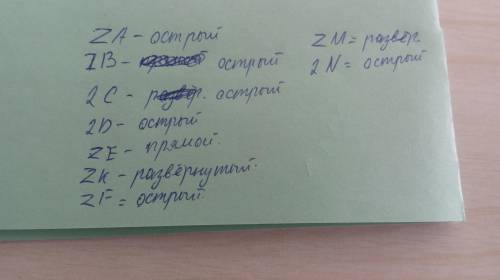 ∠A - острый
∠B - острый
∠C - острый
∠D - острый
∠E - прямой.
∠K - развёрнутый.
∠F = острый.
∠M = развёр.
∠N = острый